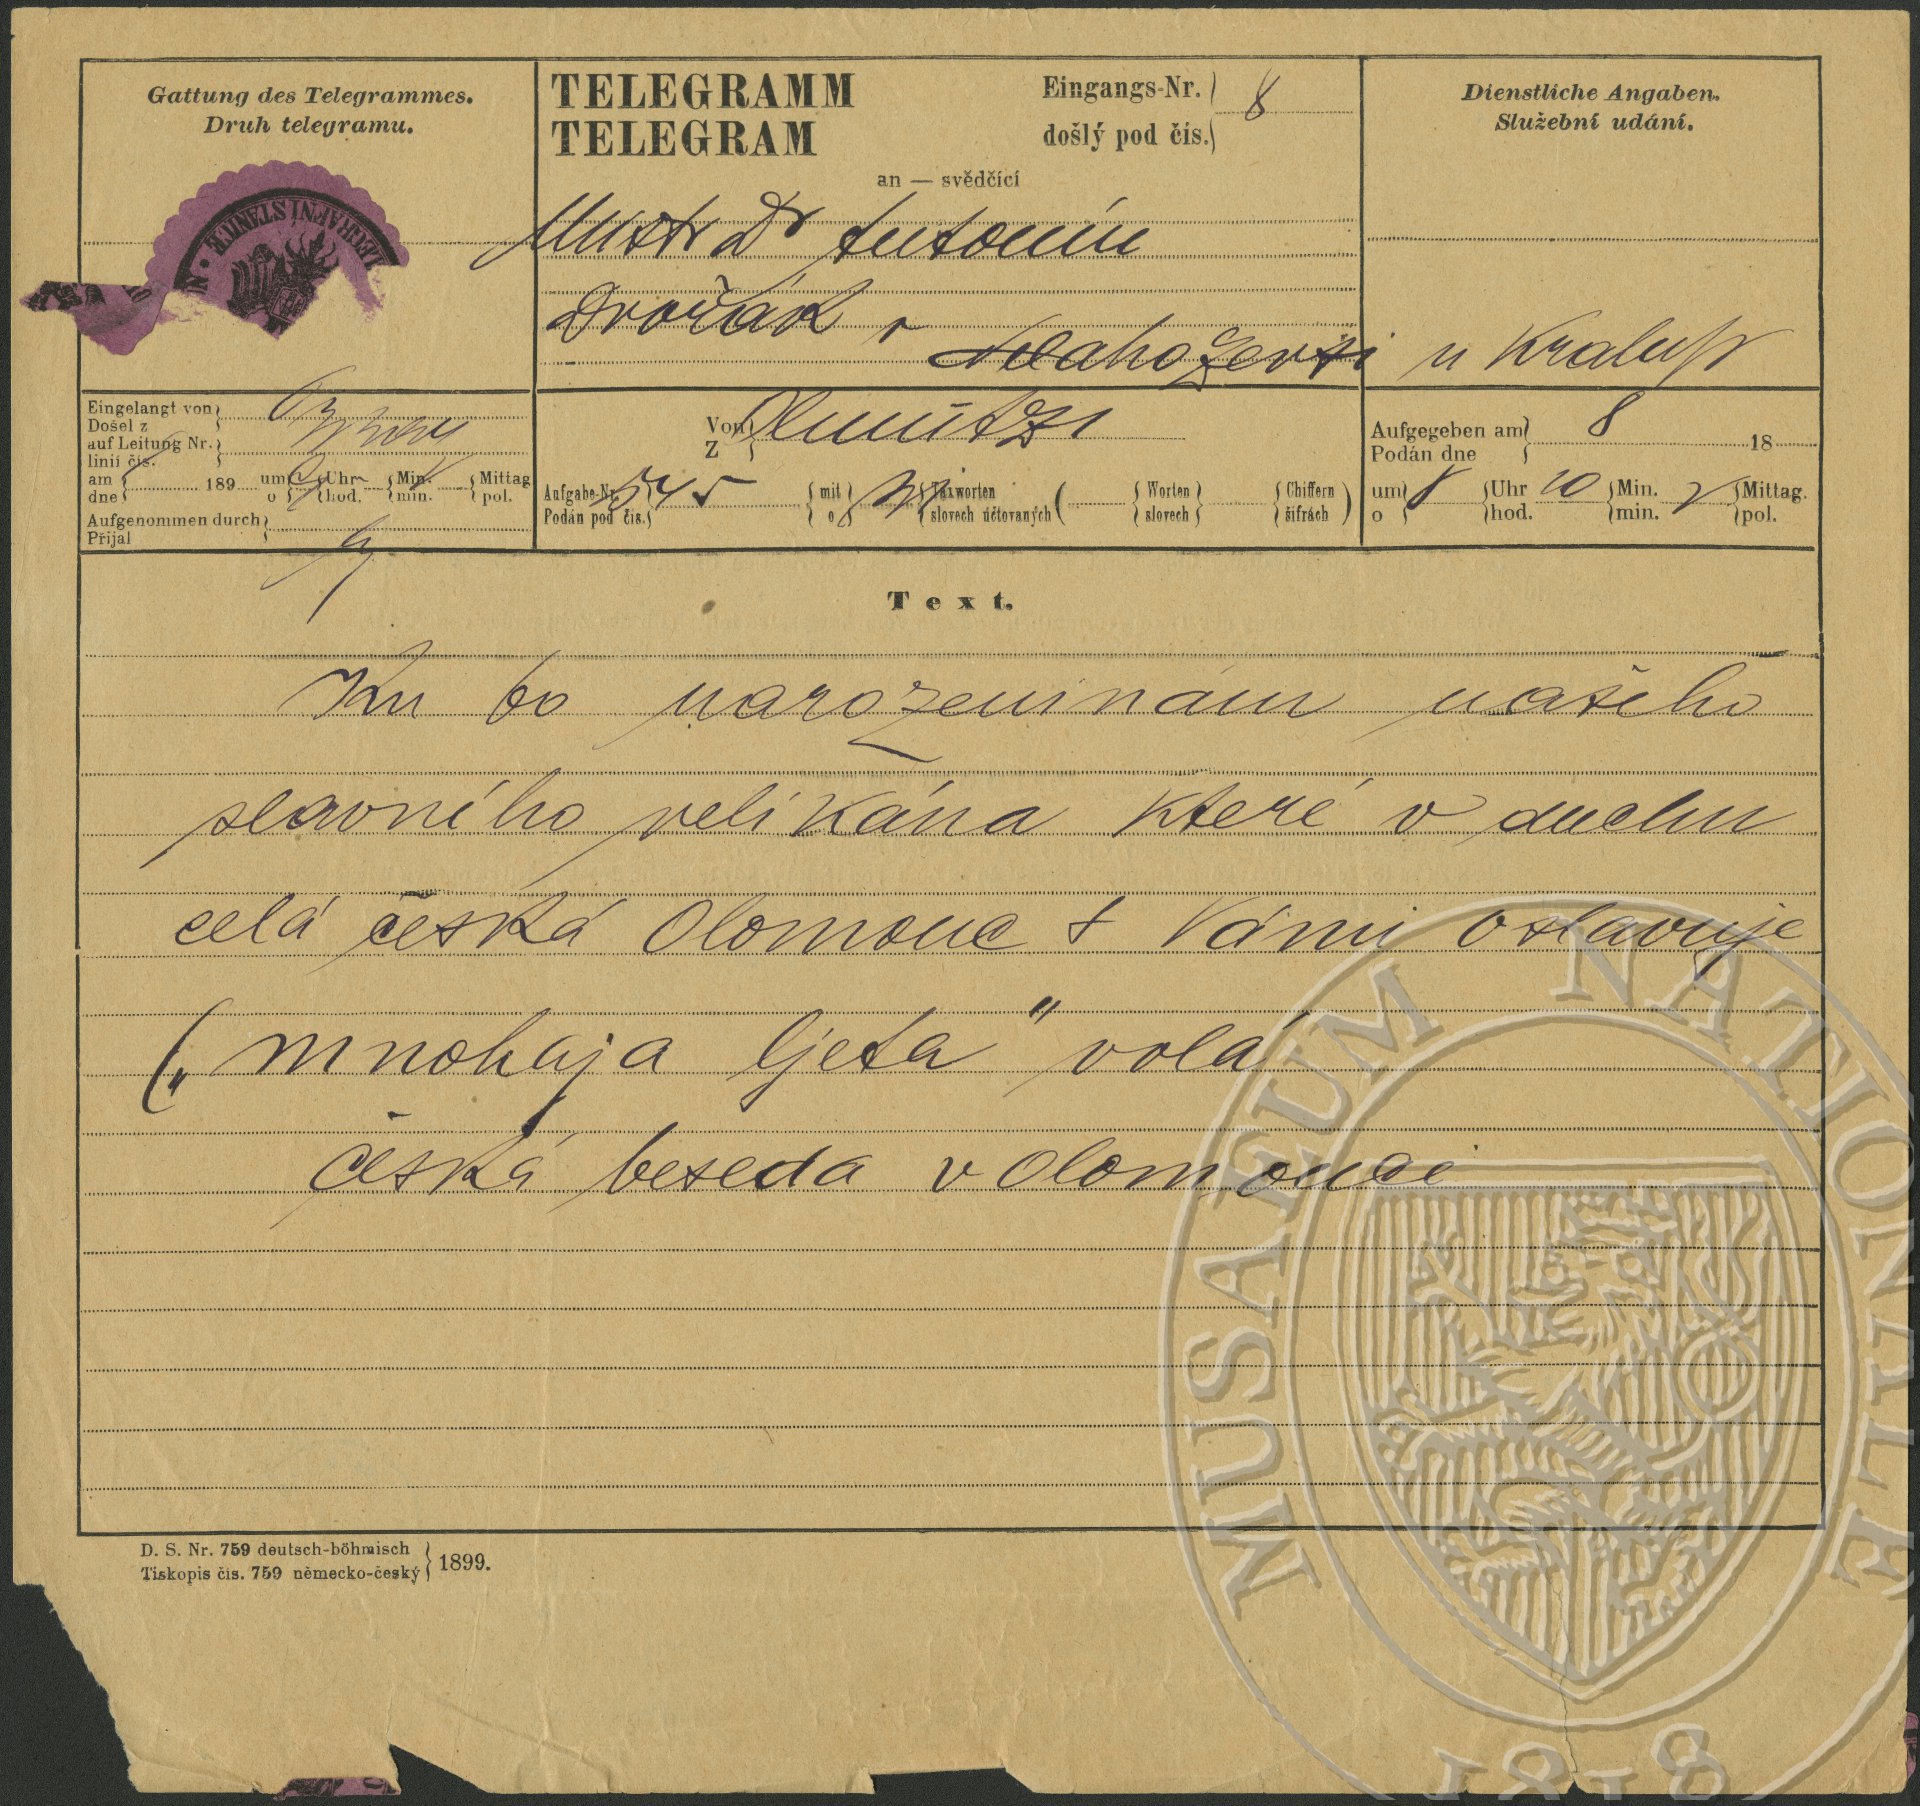 Gattung des Telegrammes.
Druh telegramu.
TELEGRAMM
TELEGRAM
Eingangs-Nr.
došlý pod čís.
8
Dienstliche Angaben.
Služební udání.
an — svědčící
Mistr Dr Antonín
Dvořák v Nelahozevsi u Kralup
Eingelangt von
Došel z
auf Leitung Nr.
linií čís.
am
dne
189
um
o
Uhr
hod.
Min.
min.
Mittag
pol.
Aufgenommen durch
Přijal
Von
Z
Olmütz 1
Aufgabe-Nr.
Podán pod čís.
545
mit
o
Taxworten
slovech účtovaných
Worten
slovech
Chiffern
šifrách
Aufgegeben am
Podán dne
8
18
um
o
8
Uhr
hod.
20
Min.
min.
Mittag.
pol.
Text.
Ku 60 narozeninám našeho
slavného velikána které v duchu
celá česká Olomouc s Vámi oslavuje
„mnohaja ljeta" volá
česká beseda v Olomouci
D. S. Nr. 759 deutsch-böhmisch
Tiskopis čís. 759 německo-český
1899.
MUSAEUM NATIONALE
1818